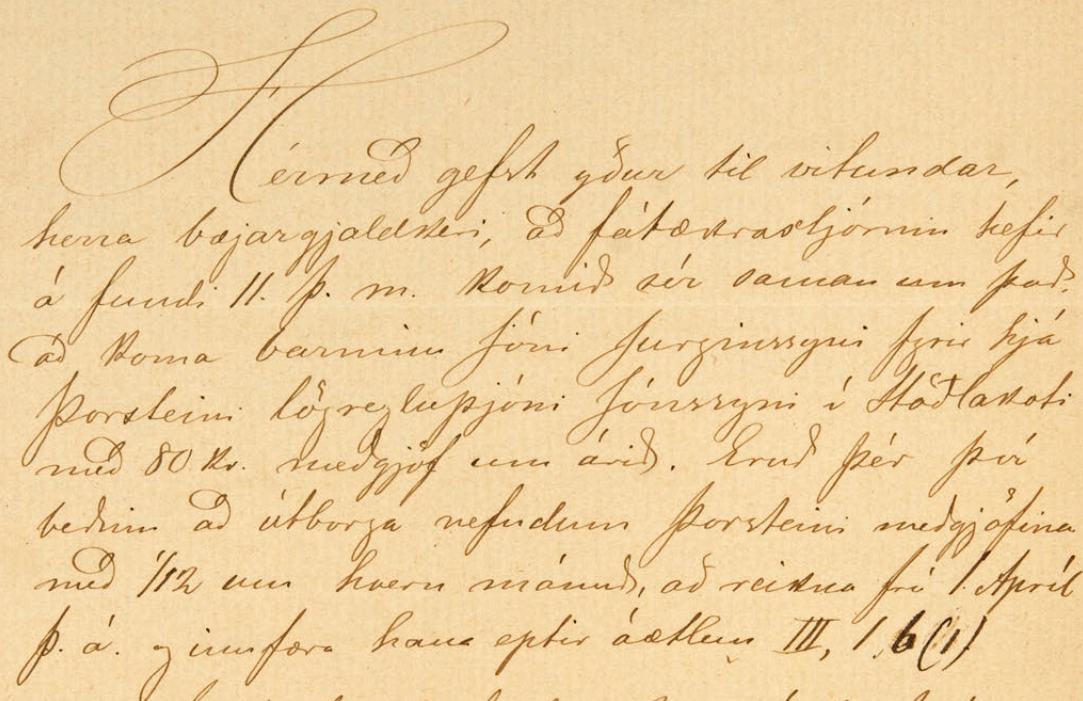 Hérmeð gefst yður til vitundar,
herra bæjargjaldkeri, að fátækrastjórnin hefir
á fundi 11. þ. m. komið sér saman um það,
að koma barninu Jóni Jurginssyni fyrir hjá
Þorsteini lögregluþjóni Jónssyni í Stöðlakoti
með 80 kr. meðgjöf um árið. Eruð þér því
beðinn að útborga nefndum Þorsteini meðgjöfina
með 1/12 um hvern mánuð, að reikna frá 1. Apríl
þ. á. og innfæra hana eptir áætlun III, 1, 6 (1)